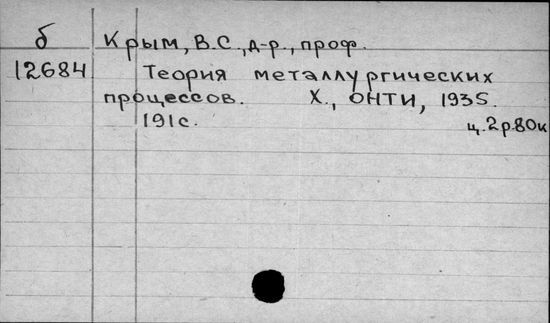 б Крым, В.С., д-р., проф.
12684 Теория металлургических
процессов. Х., ОНТИ, 1935.
191с. ц. 2р.80к